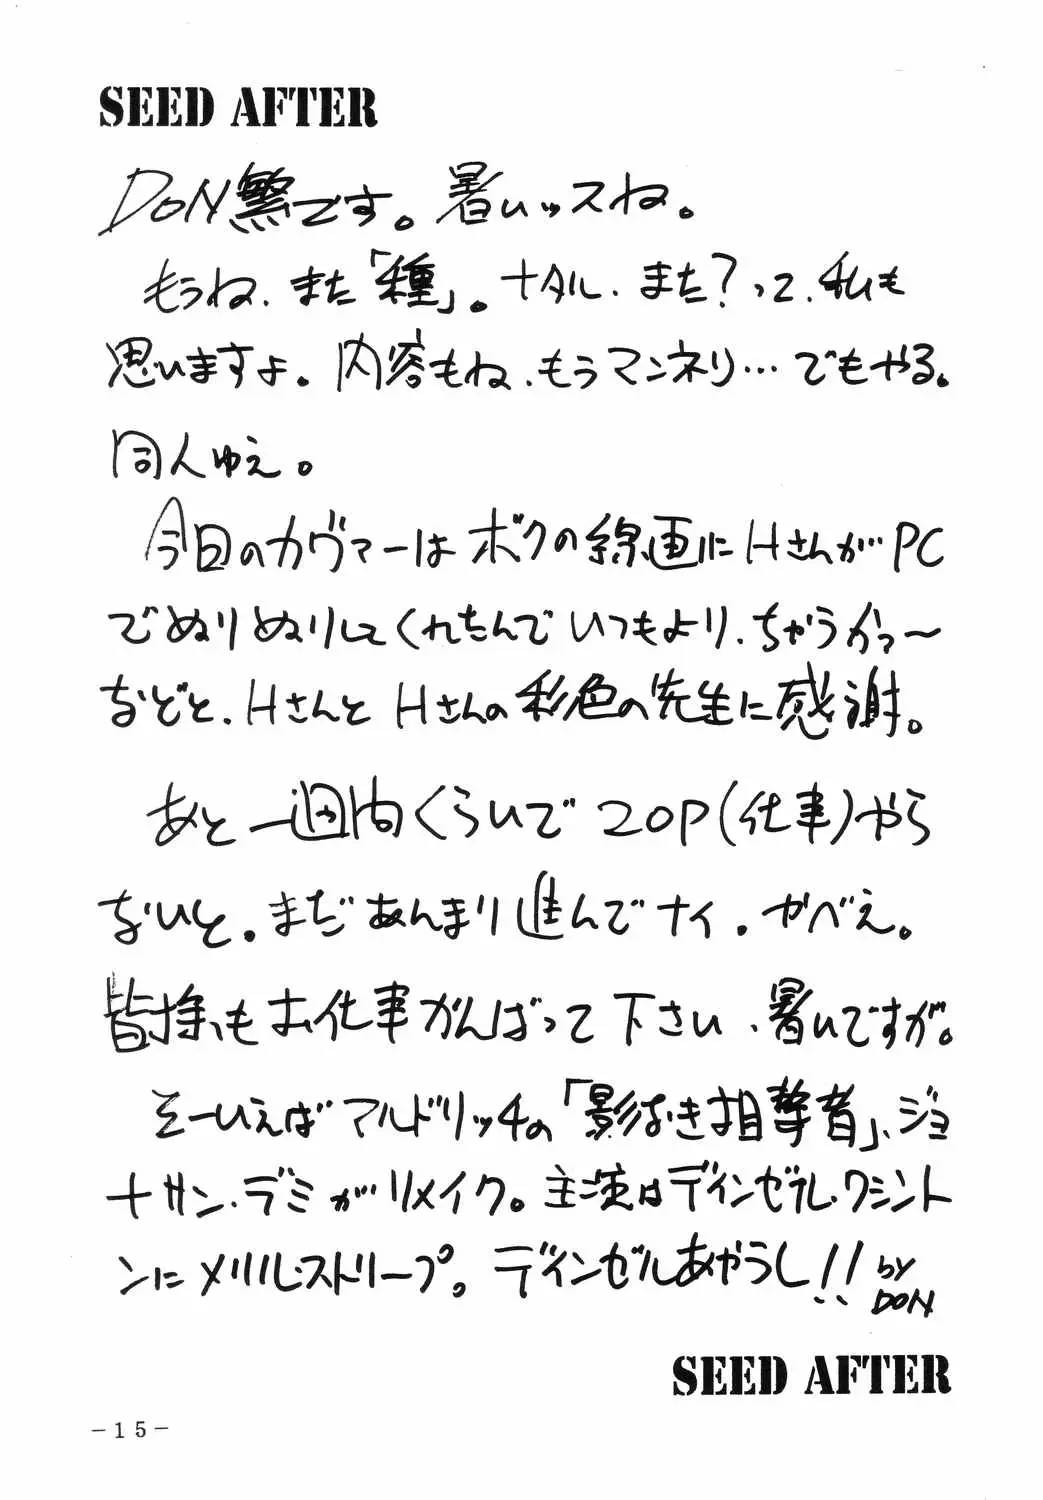 SEED AFTER
DON繁です。暑いッスね。
もうね、また「種」。ナタル、また?って、私も
思いますよ。内容もね、もうマンネリ…でもやる。
同人ゆえ。
今日のカヴァーはボクの線画にHさんがPC
でぬりぬりしてくれたんでいつもより、ちゃうかっ〜
などと、HさんとHさんの彩色の先生に感謝。
あと一週間くらいで20P(仕事)やら
ないと。まだあんまり進んでナイ。がべえ。
皆様もお仕事がんばって下さい、暑いですが。
そーいえばマルドリッチの「影なき狙撃者」、ジョ
ナサン・デミがリメイク。主演はディンゼル・ワシント
ンにメリル・ストリープ。ディンゼルあやうし!! BY
DON
SEED AFTER
-15-